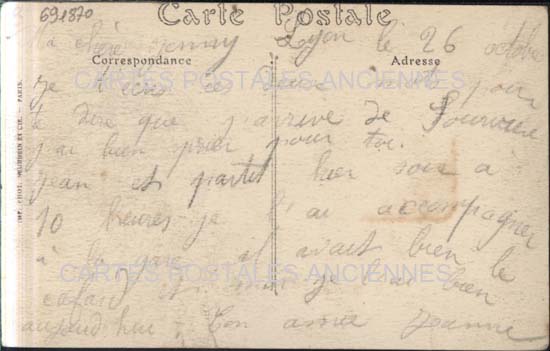 691870
Carte Postale
Ma chère Jenny Lyon le 26 octobre
Correspondance
Adresse
je ces deux mots pour
CARTES POSTALES ANCIENNES
te dire que j'arrive de Fourvière
j'ai bien prier pour toi.
jean est partit hier soir a
10 heures je l'ai accompagner
à la gare il avait bien le
CARTES POSTALES ANCIENNES
cafard et moi je l'ai bien
aujourd'hui. Ton amie Jeanne
PARIS.